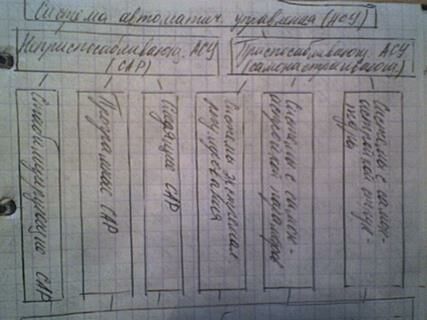 Система автоматич. управления (АСУ)
Неприспосабливающ. АСУ
(САР)
Приспосабливающ. АСУ
(самонастраивающ.)
Стабилизирующие САР
Програмные САР
Следящие САР
Системы экстремал.
регулирования
Системы с самон-
астройкой параметров
Системы с самон-
астройкой структ-
уры